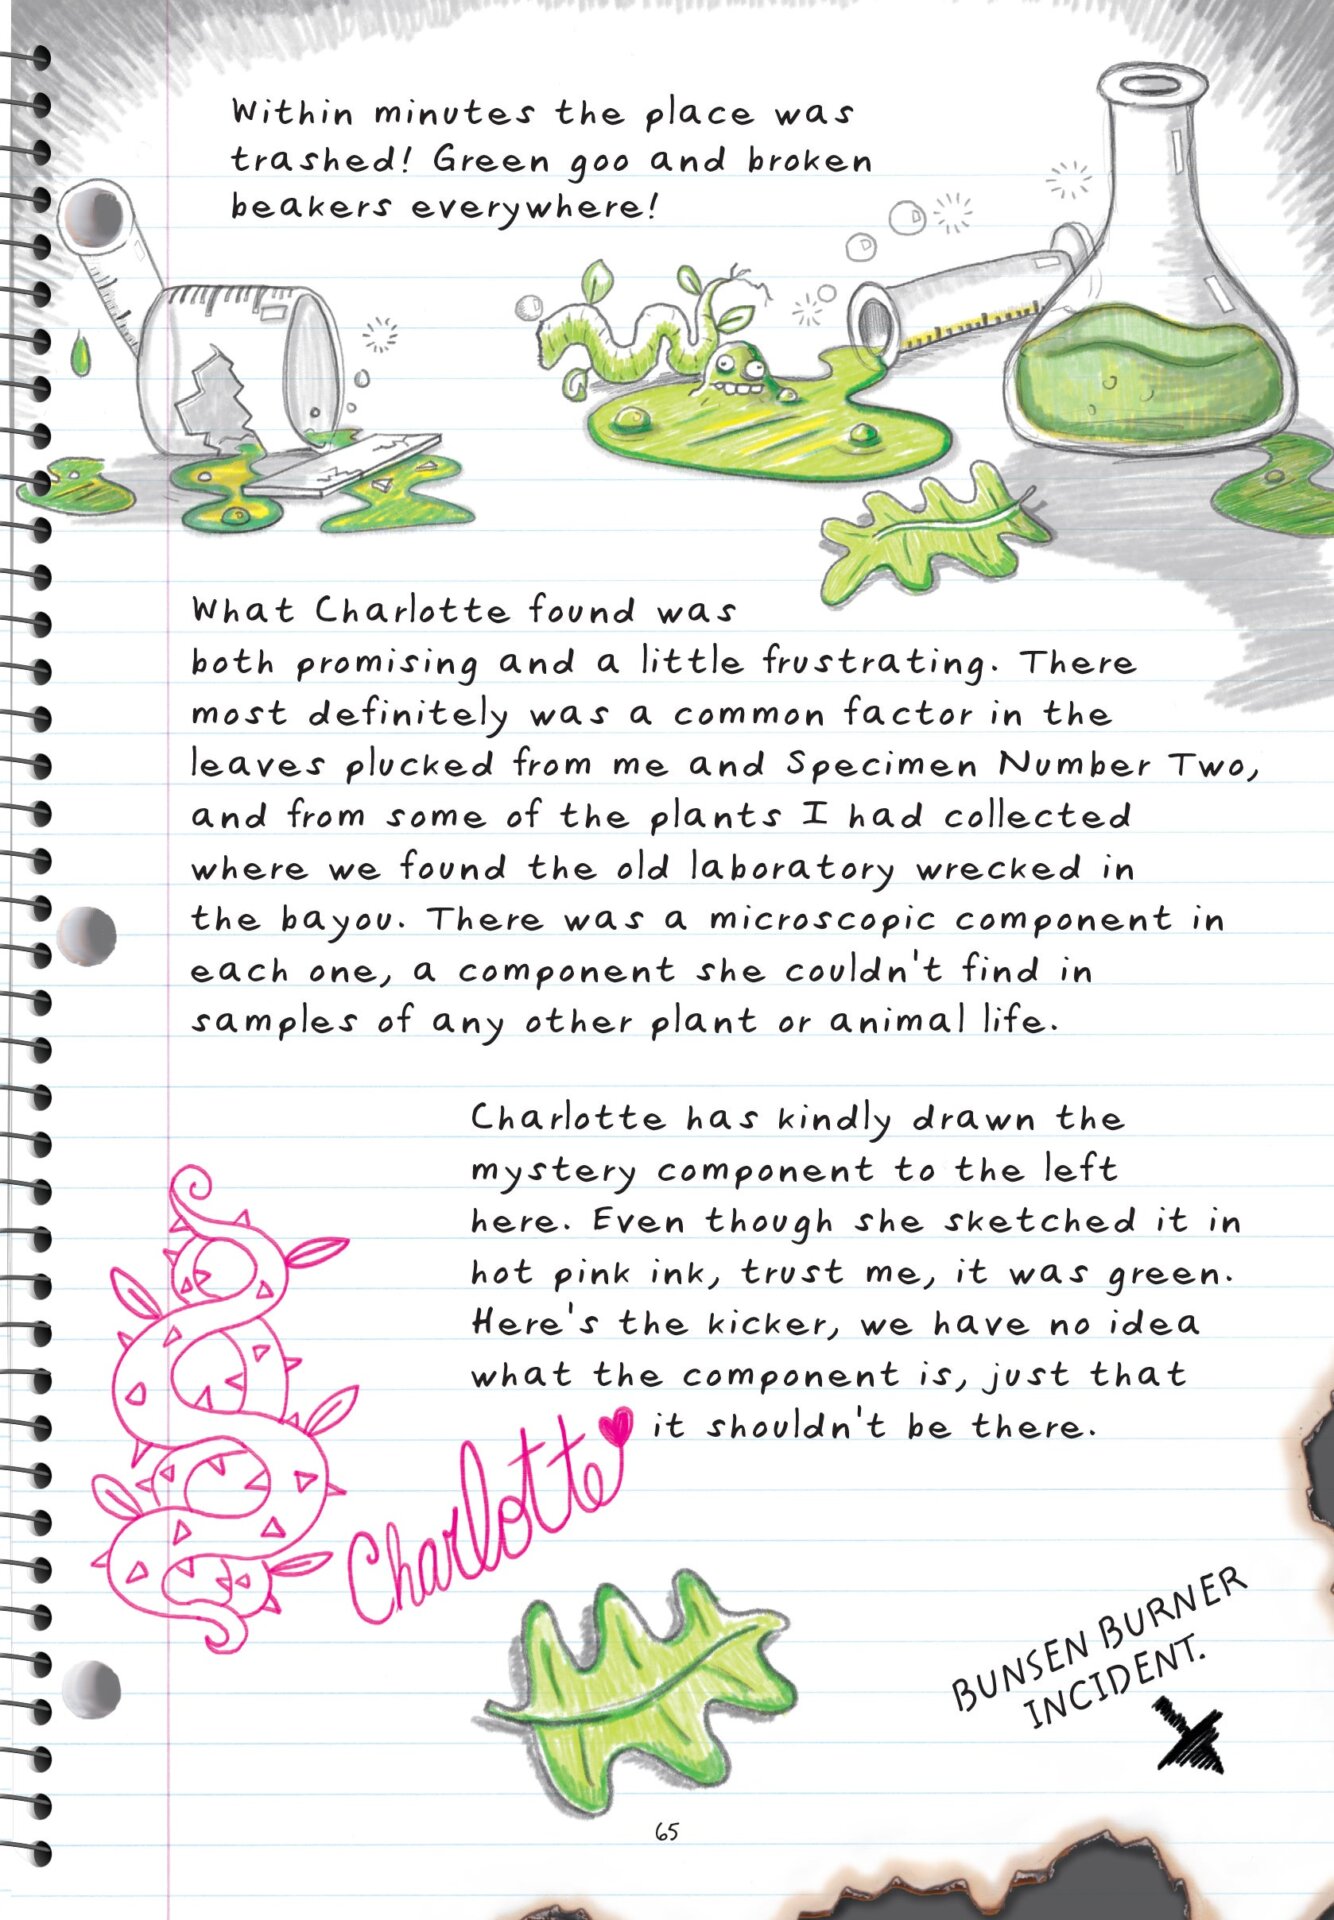 Within minutes the place was
trashed! Green goo and broken
beakers everywhere!
What Charlotte found was
both promising and a little frustrating. There
most definitely was a common factor in the
leaves plucked from me and Specimen Number Two,
and from some of the plants I had collected
where we found the old laboratory wrecked in
the bayou. There was a microscopic component in
each one, a component she couldn't find in
samples of any other plant or animal life.
Charlotte has kindly drawn the
mystery component to the left
here. Even though she sketched it in
hot pink ink, trust me, it was green.
Here's the kicker, we have no idea
what the component is, just that
it shouldn't be there.
Charlotte
BUNSEN BURNER
INCIDENT.
65